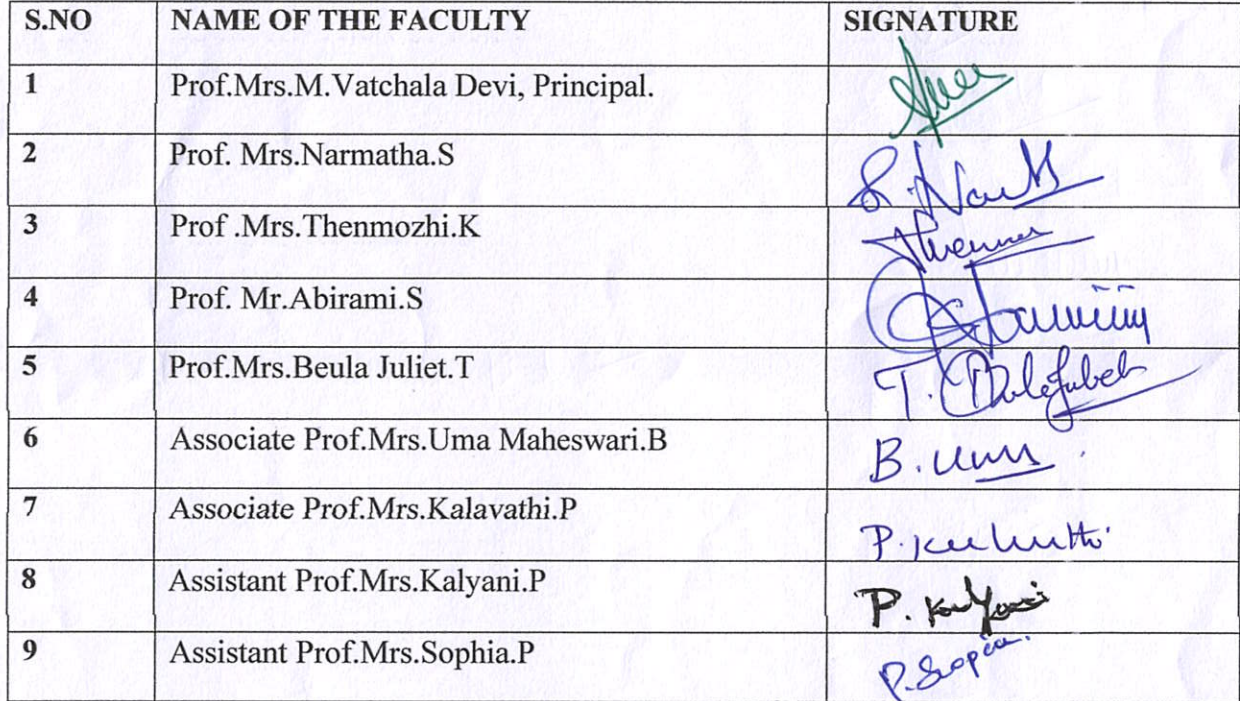 S.NO NAME OF THE FACULTY SIGNATURE
1 Prof.Mrs.M.Vatchala Devi, Principal.
2 Prof. Mrs.Narmatha.S
3 Prof .Mrs.Thenmozhi.K
4 Prof. Mr.Abirami.S
5 Prof.Mrs.Beula Juliet.T T.
6 Associate Prof.Mrs.Uma Maheswari.B B. Uma
7 Associate Prof.Mrs.Kalavathi.P P.
8 Assistant Prof.Mrs.Kalyani.P P. Kalyani
9 Assistant Prof.Mrs.Sophia.P P.Sophia.